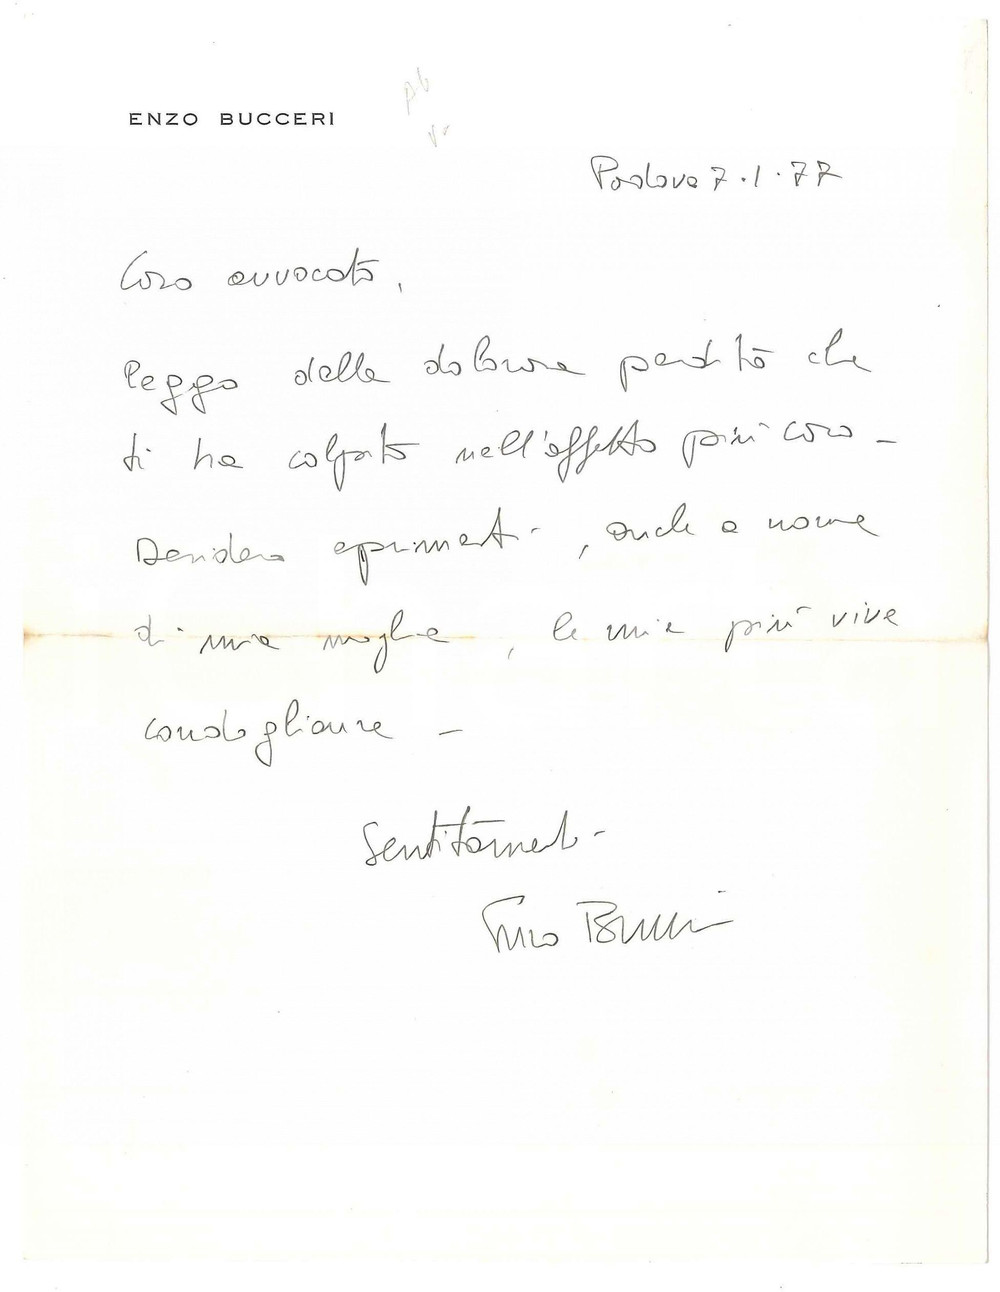 ENZO BUCCERI
Padova 7.1.77
Caro avvocato,
leggo della dolorosa perdita che
ti ha colpito nell'affetto più caro –
Desidero esprimerti, anche a nome
di mia moglie, le mie più vive
condoglianze –
Sentitamente
Enzo Bucceri